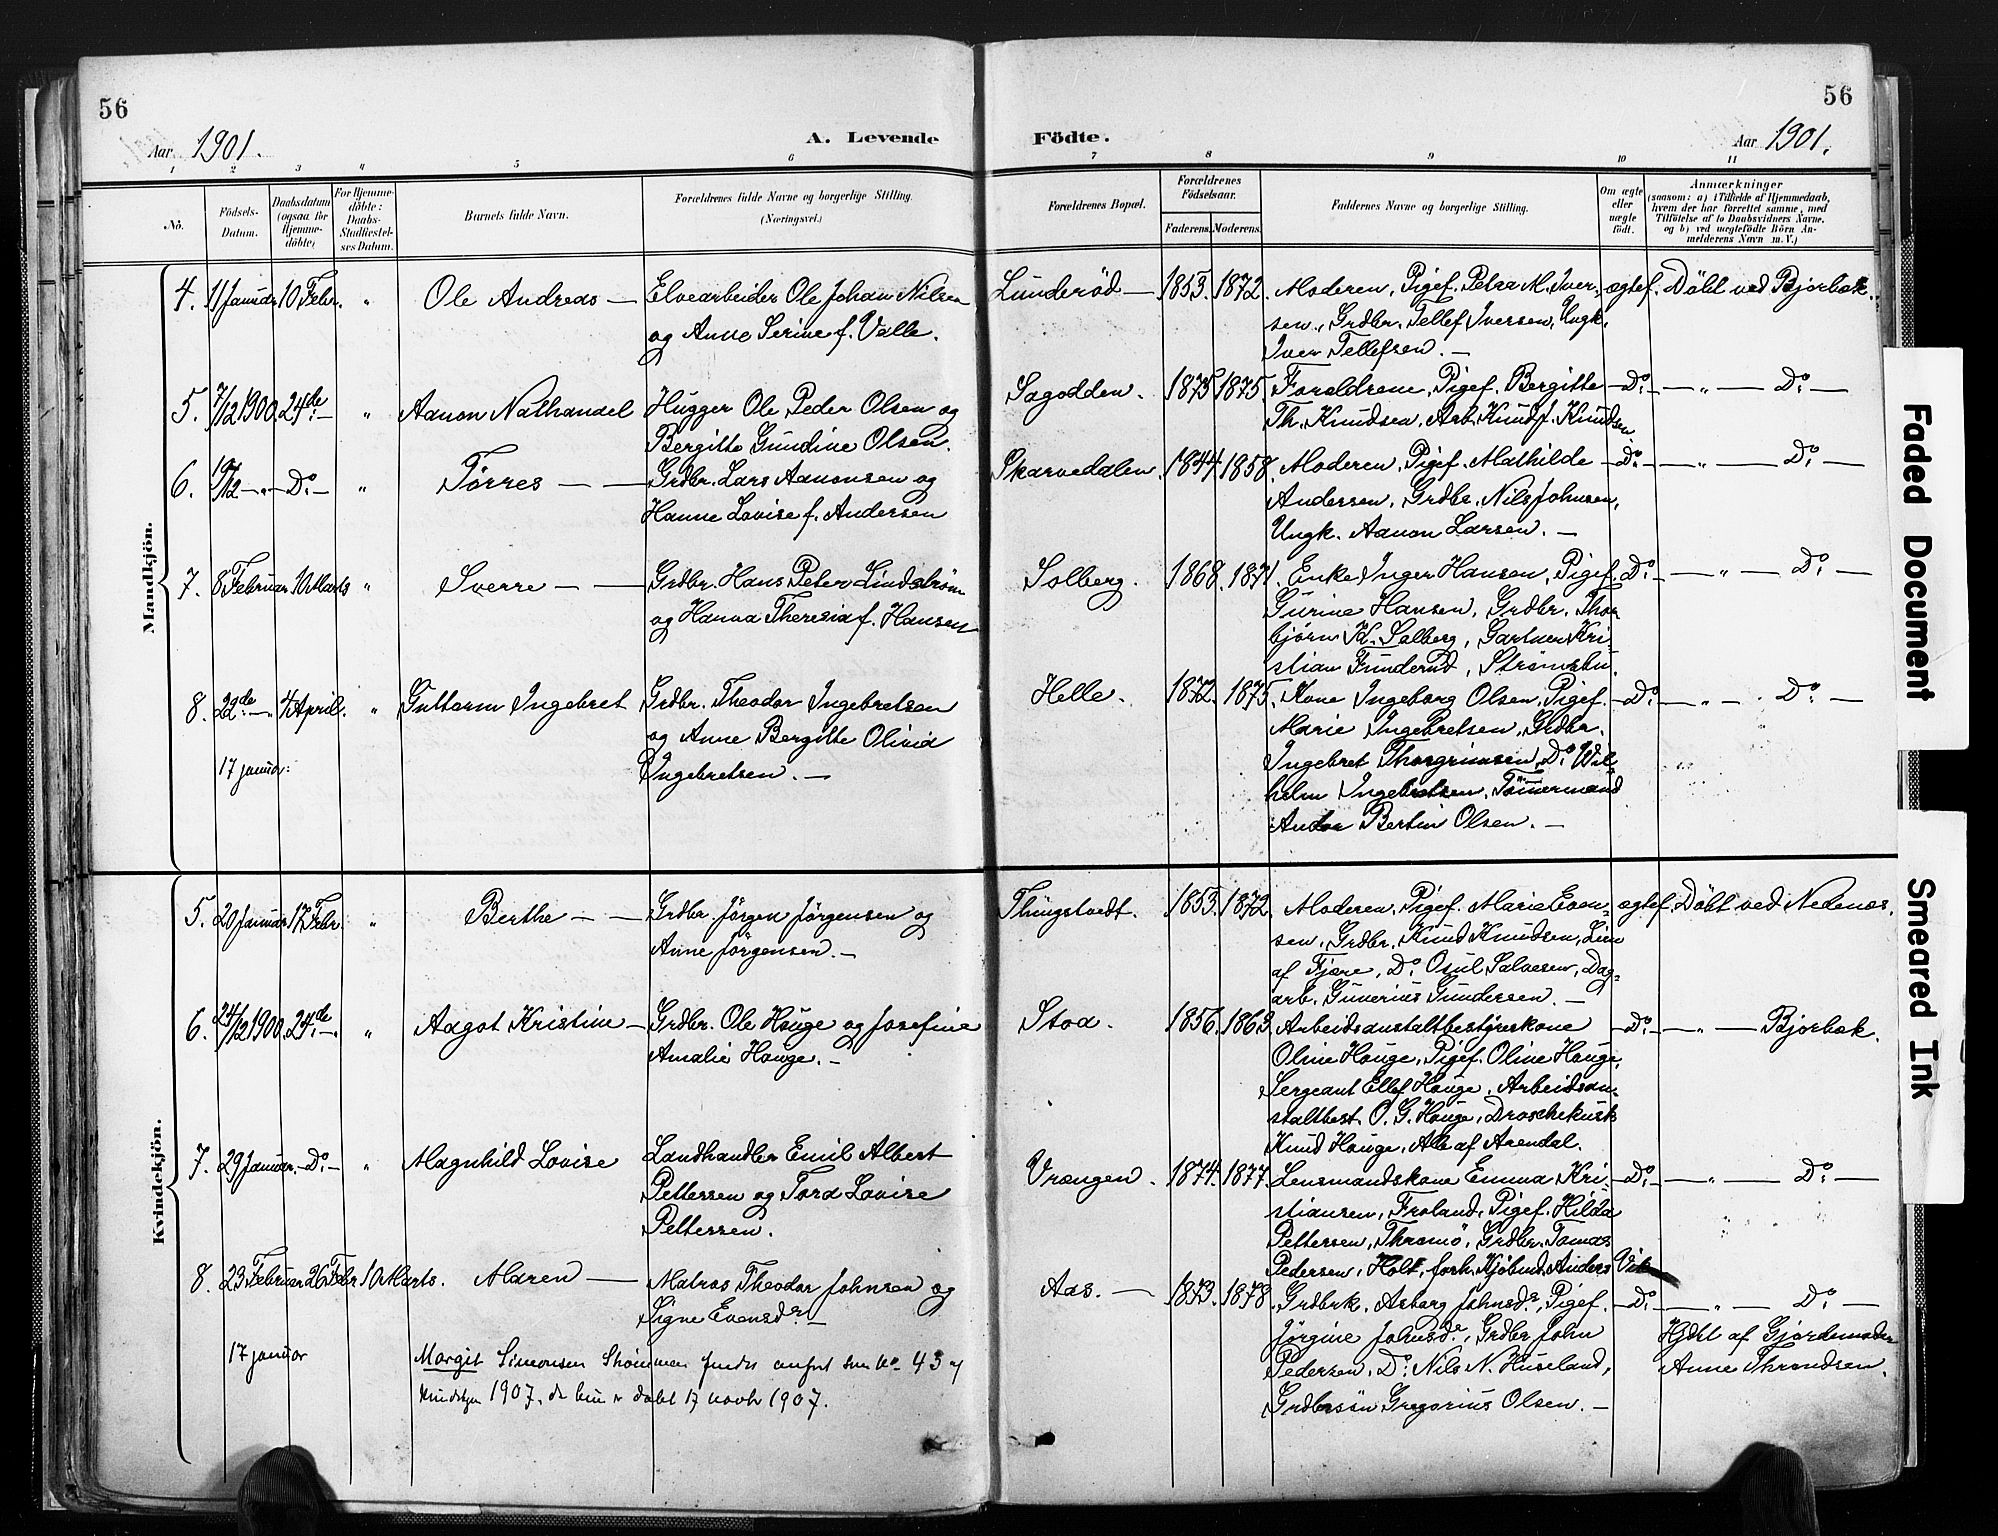 56
56
Aar 1901.
A. Levende
Födte.
Aar 1901.
1 2 3 " 5 6 7 8 9 10 11
No.
Födsels-
Datum.
Daabsdatum
(ogsaa for
Hjemme-
döbte)
For Hjemme-
döbte:
Daabs-
Stadfæstel-
ses Datum.
Barnets fulde Navn.
Forældrenes fulde Navne og borgerlige Stilling.
(Næringsvei.)
Forældrenes Bopæl.
Forældrenes
Födselsaar.
Faderens. Moderens.
Faddernes Navne og borgerlige Stilling.
Om ægte
eller
uægte
födt.
Anmærkninger
(saasom: a) i Tilfælde af Hjemmedaab,
hvem der har forrettet samme, med
Tilföielse af to Daabsvidners Navne.
og b) ved uægtefödte Börn An-
melderens Navn m. V.)
Mandkjön.
4. 11 Januar 10 Febr. " Ole Andreas — Elvearbeider Ole Johan Nilsen
og Anne Serine f. Valle.
Lunderød — 1853. 1872. Moderen, Pigef. Petra M. Iver-
sen, Grdbr. Tellef Iversen, Ungk.
Iver Tellefsen. —
ægtef. Döbt ved Bjorbæk.
5. 7/12 1900. 24de — " Aanon Nathanael Hugger Ole Peder Olsen og
Bergitte Gundine Olsen.
Sagodden. 1875 1875. Forældrene, Pigef. Bergitte
Th. Knudsen, Arb. Knud J. Knudsen
— Do — " — Do —
6. 19/12 — " — Do — " Tørres — — Grdbr. Lars Aanonsen og
Hanne Lovise f. Andersen
Skarvedalen. 1844. 1858. Moderen, Pigef. Mathilde
Andersen, Grdbr. Nils Johnsen,
Ungk. Aanon Larsen. —
— Do — " — Do —
7. 8 Februar 10 Marts " Sverre — — Grdbr. Hans Peter Lindstrøm
og Hanna Theresia f. Hansen
Solberg. 1868. 1871. Enke Inger Hansen, Pigef.
Gurine Hansen, Grdbr. Thor-
bjørn K. Solberg, Gartner Kri-
stian Funderud, Strømsbu.
Do — " — Do —
8. 22de — " — 4 April. " Guttorm Ingebret Grdbr. Theodor Ingebretsen
og Anne Bergitte Olivia
Ingebretsen. —
17 januar:
Helle. 1872. 1875. Kone Ingeborg Olsen, Pigef.
Marie Ingebretsen, Grdbr.
Ingebret Thorgrimsen, Do Wil-
helm Ingebretsen, Tömmermand
Bertin Olsen. —
— Do — " — Do —
Kvindekjön.
5. 20 Januar 17 Febr. " Berthe — — Grdbr. Jørgen Jørgensen og
Anne Jørgensen. —
Thingstvedt. 1853. 1872. Moderen, Pigef. Marie Even-
sen, Grdbr. Knud Knudsen, Lien
af Fjære, Do Osul Salvesen, Dag-
arb. Gunerius Gundersen. —
ægtef. Döbt ved Nedenæs.
6. 24/12 1900. 24de — " Aagot Kristine — Grdbr. Ole Houge og Josefine
Amalie Houge. —
Stoa. 1856. 1863. Arbeidsanstaltbestyreskone
Oline Houge, Pigef. Oline Houge,
Sergeant Ellef Houge, Arbeidsan-
staltbest. O. G. Houge, Droschekusk
Knud Houge, Alle af Arendal.
— Do — " — Bjorbæk.
7. 29 Januar. — Do — " Magnhild Lovise Landhandler Emil Albert
Pettersen og Tora Lovise
Pettersen.
Vrængen. 1874. 1877. Lensmandskone Emma Kri-
stiansen, Froland, Pigef. Hilda
Pettersen, Thromø, Grdbr. Tomas
Pedersen, Holt, forh. Kjøbmd. Anders Vik
— Do — " — Do —
8. 23 Februar 26 Febr. 10 Marts. Maren — Matros Theodor Johnsen og
Signe Evensdr. —
Aas. — 1873. 1878. Grdbrk. Asborg Johnsdr, Pigef.
Jørgine Johnsdr, Grdbr. John
Pedersen, Do Nils N. Huseland,
Grdbrsøn Gregorius Olsen. —
— Do — " — Do —
Hjdbt af Gjordemoder
Anne Throndsen.
17 januar Margit Simonsen Strømmen findes anført som No 43
1907, da hun er døbt 17 novbr 1907.
Faded Document
Smeared Ink